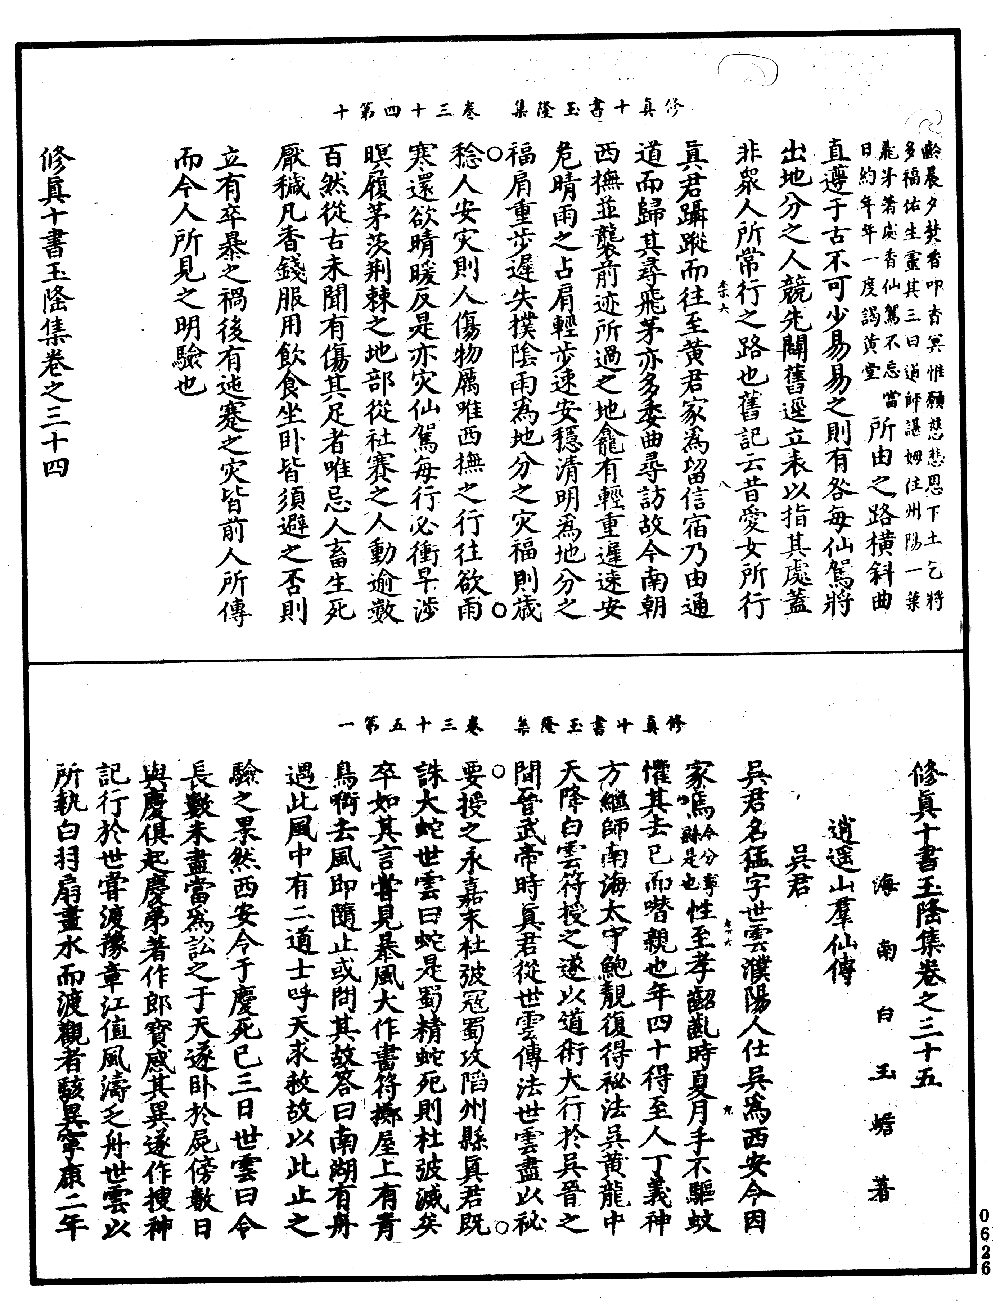 修真十書玉隆集　卷三十四第十
齡晨夕焚香叩杳冥惟願慈悲恩下土乞將
多福佑生靈其三曰道師諶姆住州陽一葉
飛茅著處香仙駕不忘當
日約年年一度謁黃堂所由之路橫斜曲
直遵于古不可少易易之則有咎每仙駕將
出地分之人競先闢舊逕立表以指其處蓋
非眾人所常行之路也舊記云昔愛女所行
真君躡蹤而往至黃君家為留信宿乃由通
道而歸其尋飛茅亦多委曲尋訪故今南朝
西撫並襲前迹所過之地龕有輕重遲速安
危晴雨之占肩輕步速安穩清明為地分之
福肩重步遲失撲陰雨為地分之灾福則歲
稔人安灾則人傷物厲唯西撫之行往欲雨
寒還欲晴暖反是亦灾仙駕每行必衝早涉
暝履茅茨荆棘之地部從社賽之人動逾數
百然從古未聞有傷其足者唯忌人畜生死
厭穢凡香錢服用飲食坐卧皆須避之否則
立有卒暴之禍後有迍蹇之灾皆前人所傳
而今人所見之明驗也
修真十書玉隆集卷之三十四
修真十書玉隆集　卷三十五第一
修真十書玉隆集卷之三十五
海南白玉蟾著
逍遥山羣仙傳
吳君
吳君名猛字世雲濮陽人仕吳為西安令因
家焉今分寧縣是也性至孝齠齓時夏月手不驅蚊
懼其去己而噆親也年四十得至人丁義神
方繼師南海太守鮑靚復得祕法吳黄龍中
天降白雲符授之遂以道術大行於吳晉之
間晉武帝時真君從世雲傳法世雲盡以祕
要授之永嘉末杜弢冦蜀攻陷州縣真君既
誅大蛇世雲曰蛇是蜀精蛇死則杜弢滅矣
卒如其言嘗見暴風大作書符擲屋上有青
鳥銜去風即隨止或問其故答曰南湖有舟
遇此風中有二道士呼天求救故以此止之
驗之果然西安令于慶死已三日世雲曰令
長數未盡當為訟之于天遂卧於屍傍數日
與慶俱起慶弟著作郎寶感其異遂作搜神
記行於世嘗渡豫章江值風濤乏舟世雲以
所執白羽扇畫水而渡觀者駭異寧康二年
0626